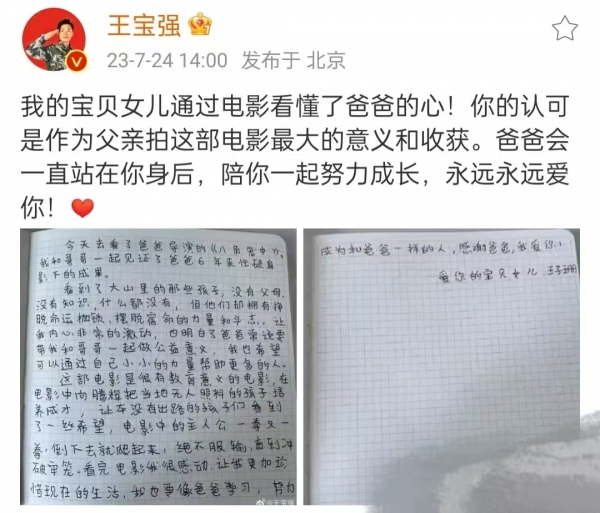 王宝强
23-7-24 14:00 发布于 北京
我的宝贝女儿通过电影看懂了爸爸的心！你的认可
是作为父亲拍这部电影最大的意义和收获。爸爸会
一直站在你身后，陪你一起努力成长，永远永远爱
你！
今天去看了爸爸导演的《八角笼中》，
我和哥哥一起见证了爸爸6年来在
影下的成果。
看到了大山里的那些孩子，没有父母，
没有知识，什么都没有，但他们却拥有挣
脱命运枷锁、摆脱宿命的力量和斗志。让
我内心非常的激动，也明白了爸爸常说要
带我和哥哥一起做公益意义，我也希望
可以通过自己小小的力量帮助更多的人。
这部电影是很有教育意义的电影，在
电影中向腾辉把当地无人照料的孩子培
养成才，让本没有出路的孩子们看到
了一丝希望，电影中的主人公一拳又一
拳，倒下去就爬起来，绝不服输，直到冲
破牢笼。看完电影我很感动，让我更加珍
惜现在的生活，我也要像爸爸学习，努力
@王宝强
成为和爸爸一样的人，感谢爸爸，我爱你！
爱你的宝贝女儿 王子珊